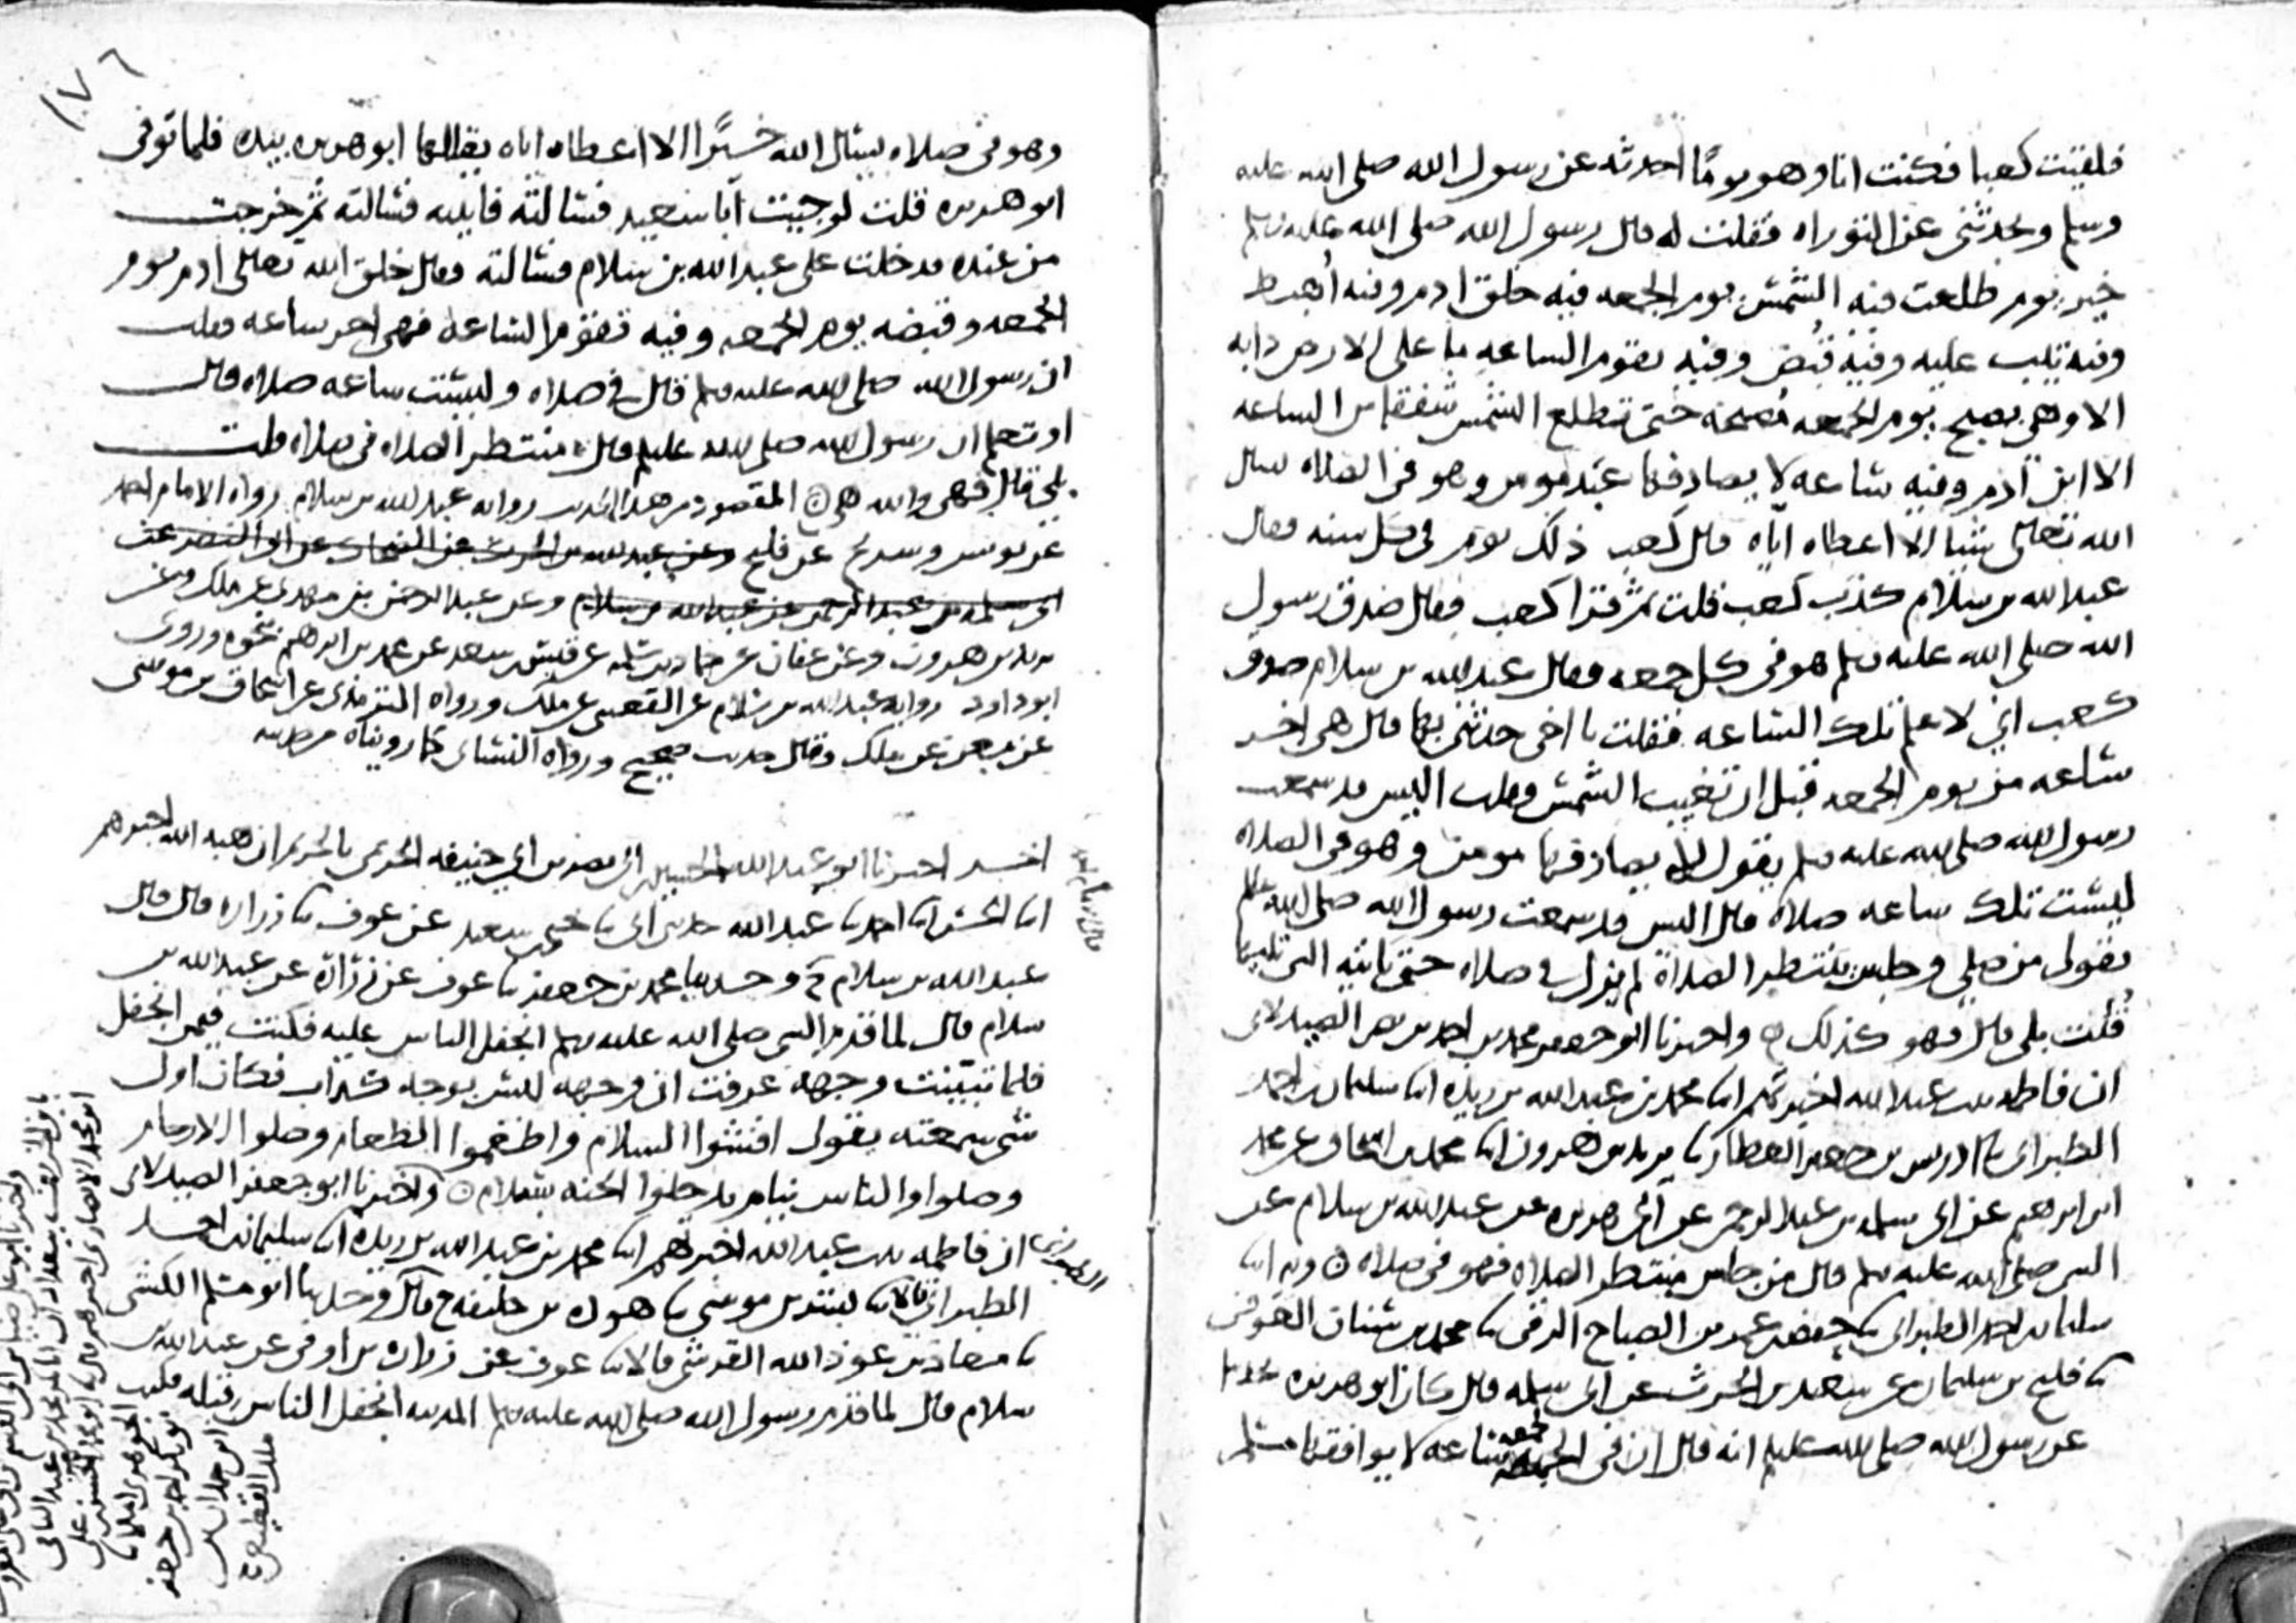 فلقيت كعبا فكنت انا وهو يومًا احدثه عن رسول الله صلى الله عليه
وسلم ويحدثني عن التوراه فقلت له قال رسول الله صلى الله عليه وسلم
خير يوم طلعت فيه الشمس يوم الجمعه فيه خلق ادم وفيه أُهبط
وفيه تيب عليه وفيه قُبض وفيه تقوم الساعه ما على الارض دابه
الا وهي تصبح يوم الجمعه مصيخه حتى تطلع الشمس شفقا من الساعه
الا ابن ادم وفيه ساعه لا يصادفها عبد مومن وهو في الصلاه يسال
الله تعالى شيا الا اعطاه اياه قال كعب ذلك يوم في كل سنه فقال
عبد الله بن سلام كذب كعب قلت ثم قرا كعب فقال صدق رسول
الله صلى الله عليه وسلم هو في كل جمعه فقال عبد الله بن سلام صدق
كعب اني لاعلم تلك الساعه فقلت يا اخي حدثني بها قال هي اخر
ساعه من يوم الجمعه قبل ان تغيب الشمس فقلت اليس قد سمعت
رسول الله صلى الله عليه وسلم يقول لا يصادفها مومن وهو في الصلاه
ليست تلك ساعه صلاه قال اليس قد سمعت رسول الله صلى الله عليه وسلم
يقول من صلى وجلس ينتظر الصلاة لم يزل في صلاه حتى تاتيه التي تليها
قُلت بلى قال فهو كذلك ۞ واخبرنا ابو جعفر محمد بن احمد بن نصر الصيدلاني
ان فاطمه بنت عبد الله اخبرتهم انا محمد بن عبد الله بن ريذه انا سليمان بن احمد
الطبراني نا ادريس بن جعفر العطار نا يزيد بن هرون انا محمد بن اسحاق عن محمد
ابن ابرهيم عن ابي سلمه بن عبد الرحمن عن ابي هريره عن عبد الله بن سلام عن
النبي صلى الله عليه وسلم قال من جلس ينتظر الصلاه فهو في صلاه ۞ وبه انا
سليمان بن احمد الطبراني نا حفص بن عمر بن الصباح الرقي نا محمد بن سنان العوقي
نا فليح بن سليمان عن سعيد بن الحرث عن ابي سلمه قال كان ابو هريره يحدثنا
عن رسول الله صلى الله عليه وسلم انه قال ان في الجمعه ساعه لا يوافقها مسلم
١٧٦
وهو في صلاه يسال الله خيرًا الا اعطاه اياه يقللها ابو هريره بيده فلما توفي
ابو هريره قلت لو جيت ابا سعيد فسالته فاتيته فسالته ثم خرجت
من عنده فدخلت على عبد الله بن سلام فسالته فقال خلق الله تعالى ادم يوم
الجمعه وقبضه يوم الجمعه وفيه تقوم الساعة فهي اخر ساعه فقلت
ان رسول الله صلى الله عليه وسلم قال في صلاه وليست ساعه صلاه قال
او تعلم ان رسول الله صلى الله عليه وسلم قال منتظر الصلاه في صلاه قلت
بلى قال فهي والله هي ۞ المقصود من هذا الحديث روايه عبد الله بن سلام رواه الامام احمد
عن يونس وسريج عن فليح وعن عبد الله بن الحرث عن الضحاك عن ابي النضر عن
ابي سلمه بن عبد الرحمن عن عبد الله بن سلام وعن عبد الرحمن بن مهدي عن ملك وعن
يزيد بن هرون وعن عفان عن حماد بن سلمه عن قيس بن سعد عن محمد بن ابرهيم نحوه وروى
ابو داود روايه عبد الله بن سلام عن القعنبي عن ملك ورواه الترمذي عن اسحاق بن موسى
عن معن عن ملك وقال حديث صحيح ورواه النسائي كما رويناه من حديثه
اخر اخبرنا ابو عبد الله بن ابي نصر بن ابي حنيفه الحربي بالحربيه ان هبه الله اخبرهم
انا الحسن انا احمد نا عبد الله حدثني ابي نا يحيى بن سعيد عن عوف نا زراره قال قال
عبد الله بن سلام ح وحدثنا محمد بن جعفر نا عوف عن زرارة عن عبد الله بن
سلام قال لما قدم النبي صلى الله عليه وسلم انجفل الناس عليه فكنت فيمن انجفل
فلما تبينت وجهه عرفت ان وجهه ليس بوجه كذاب فكان اول
شي سمعته يقول افشوا السلام واطعموا الطعام وصلوا الارحام
وصلوا والناس نيام تدخلوا الجنه بسلام ۞ واخبرنا ابو جعفر الصيدلاني
ان فاطمه بنت عبد الله اخبرتهم انا محمد بن عبد الله بن ريذه انا سليمان بن احمد
الطبراني نا بشر بن موسى نا هوذه بن خليفه ح قال وحدثنا ابو مسلم الكشي
نا معاذ بن عوذ الله القرشي قالا نا عوف عن زراره بن اوفى عن عبد الله بن
سلام قال لما قدم رسول الله صلى الله عليه وسلم المدينه انجفل الناس قبله